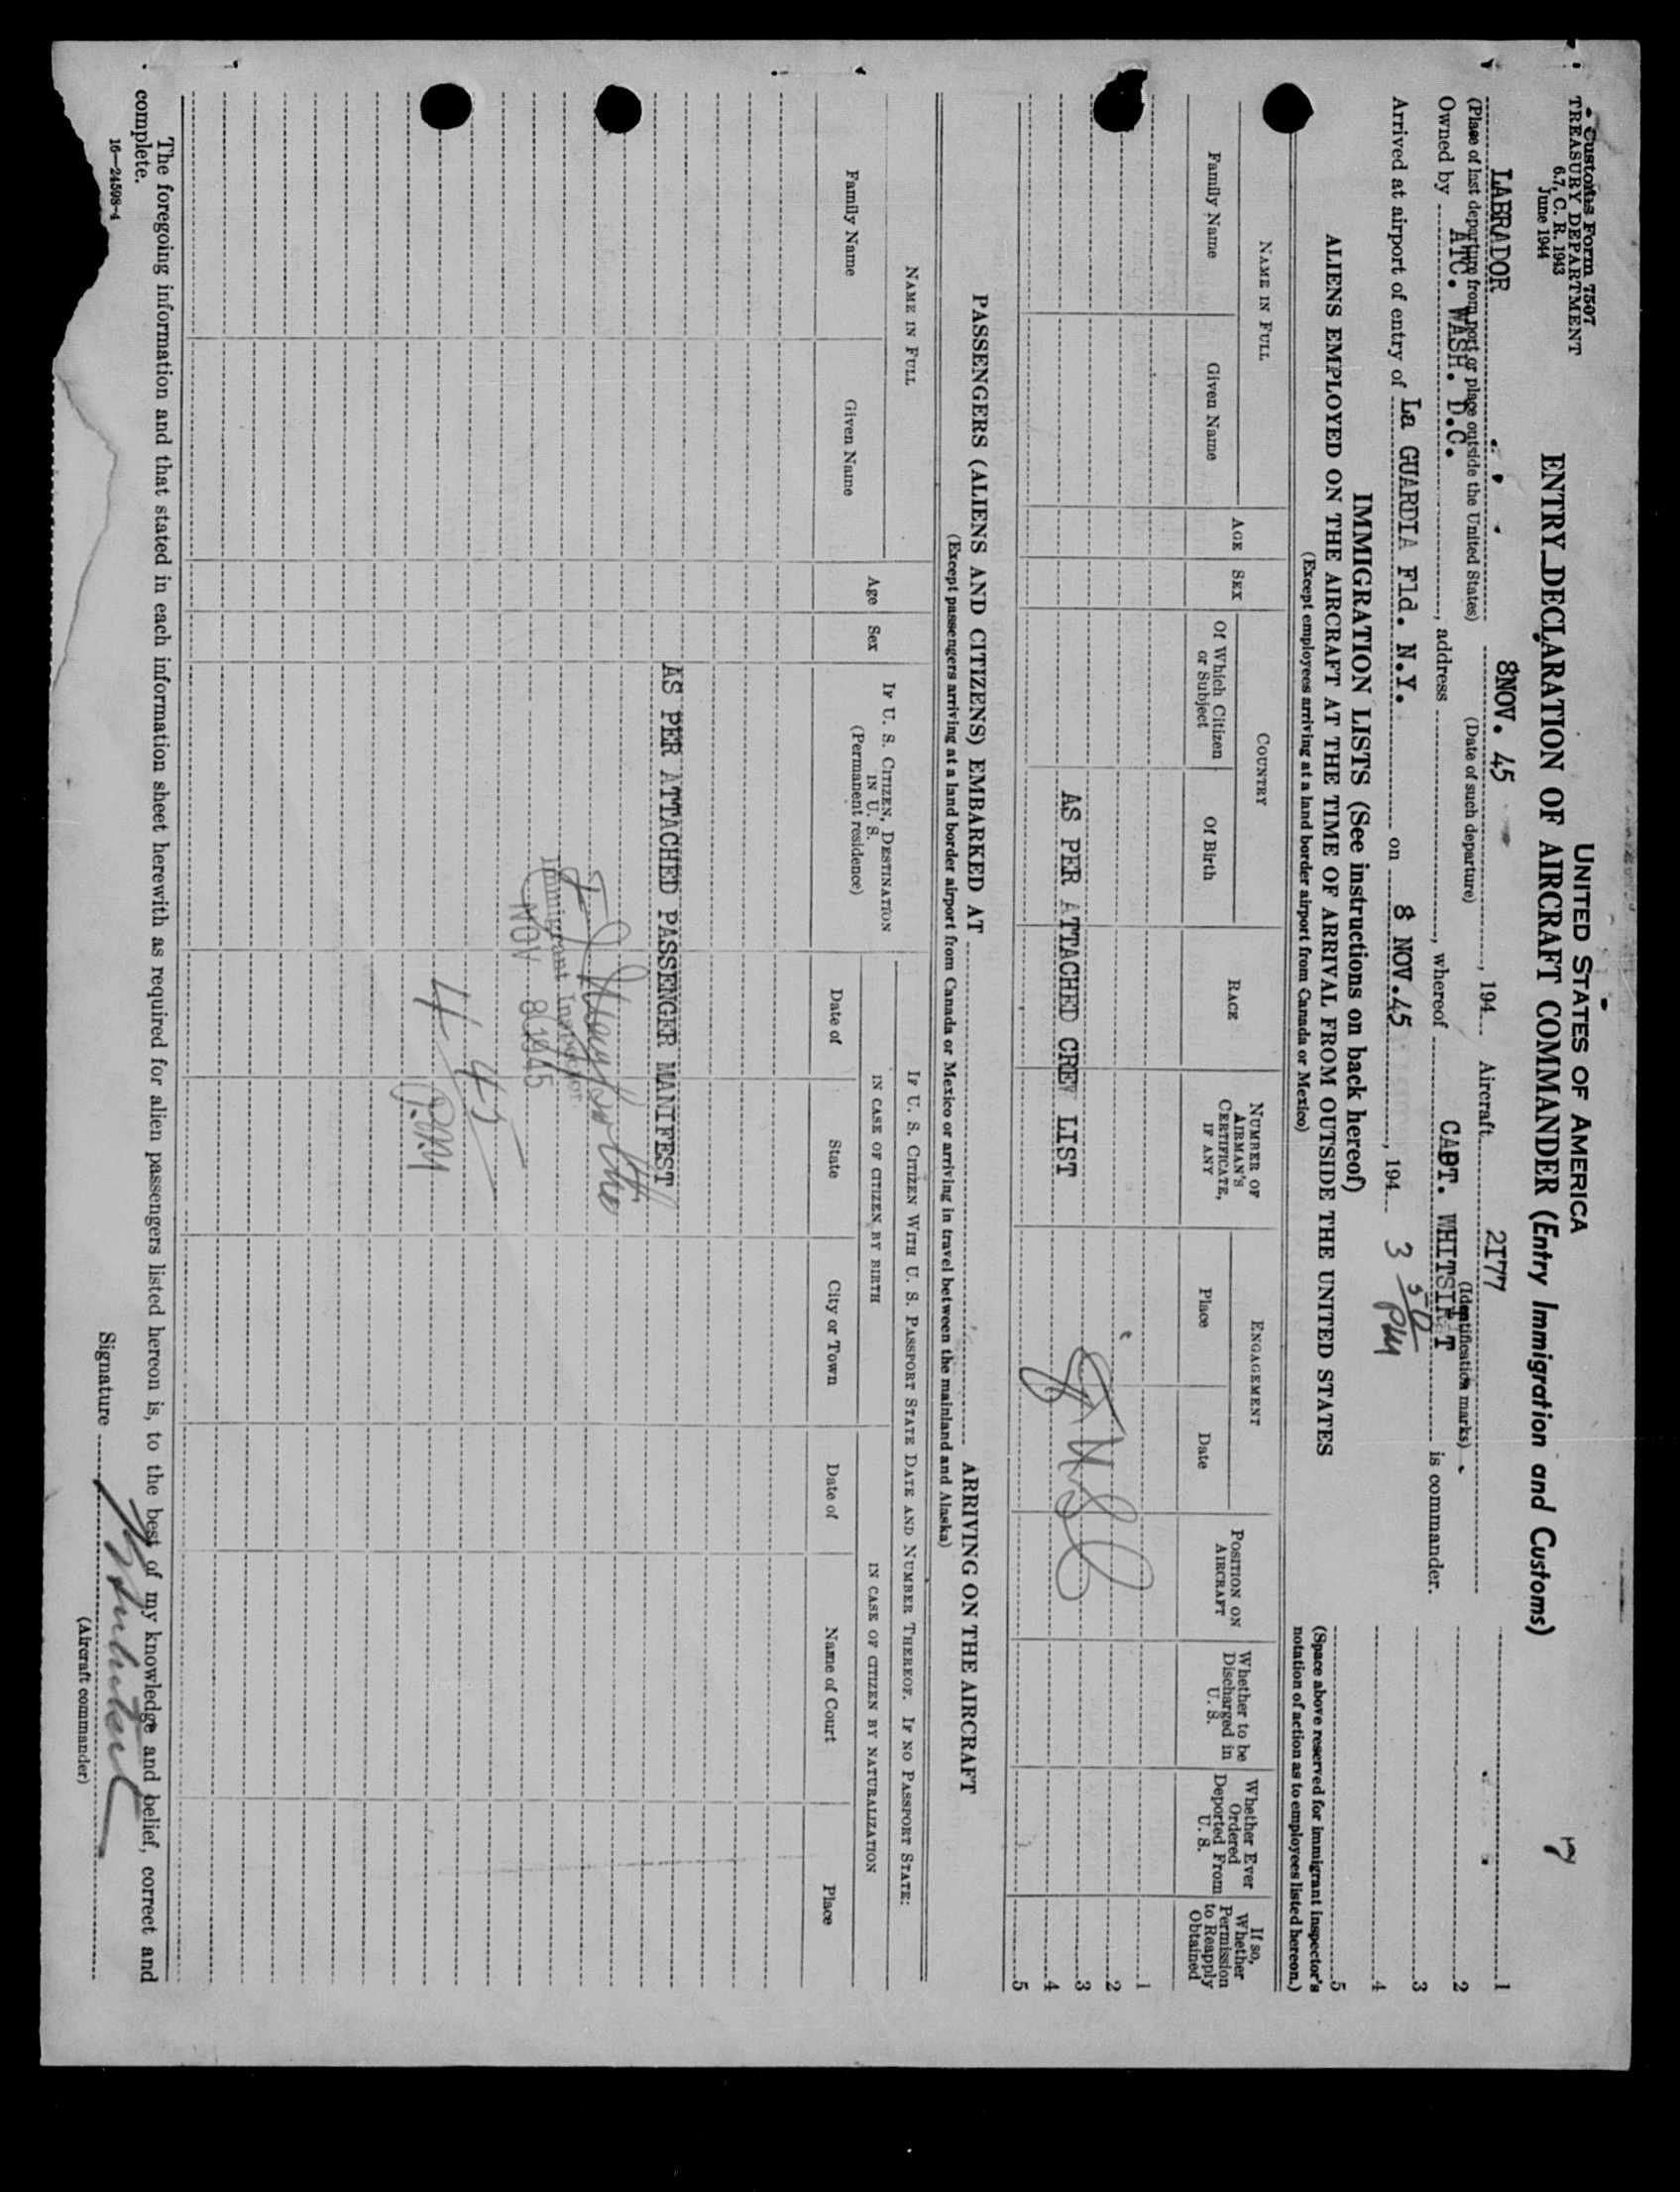 Customs Form 7507
TREASURY DEPARTMENT
6.7, C. R. 1943
June 1944
UNITED STATES OF AMERICA
7
ENTRY DECLARATION OF AIRCRAFT COMMANDER (Entry Immigration and Customs)
LABRADOR 8NOV. 45, 194 Aircraft 2177
(Place of last departure from port or place outside the United States) (Date of such departure) (Identification marks)
Owned by ATC. WASH. D.C., address , whereof CAPT. is commander.
Arrived at airport of entry of La GUARDIA Fld. N.Y. on 8 NOV. 45, 194 3 50 PM
1
2
3
4
5
(Space above reserved for immigrant inspector's
notation of action as to employees listed hereon.)
IMMIGRATION LISTS (See instructions on back hereof)
ALIENS EMPLOYED ON THE AIRCRAFT AT THE TIME OF ARRIVAL FROM OUTSIDE THE UNITED STATES
(Except employees arriving at a land border airport from Canada or Mexico)
NAME IN FULL
Family Name
Given Name
AGE
SEX
COUNTRY
Of Which Citizen
or Subject
Of Birth
RACE
NUMBER OF
AIRMAN'S
CERTIFICATE,
IF ANY
ENGAGEMENT
Place
Date
POSITION ON
AIRCRAFT
Whether to be
Discharged in
U. S.
Whether Ever
Ordered
Deported From
U. S.
If so,
Whether
Permission
to Reapply
Obtained
1
2
AS PER ATTACHED CREW LIST 3
4
5
PASSENGERS (ALIENS AND CITIZENS) EMBARKED AT ARRIVING ON THE AIRCRAFT
(Except passengers arriving at a land border airport from Canada or Mexico or arriving in travel between the mainland and Alaska)
NAME IN FULL
Family Name
Given Name
Age
Sex
IF U. S. CITIZEN, DESTINATION
IN U. S.
(Permanent residence)
IF U. S. CITIZEN WITH U. S. PASSPORT STATE DATE AND NUMBER THEREOF. IF NO PASSPORT STATE:
IN CASE OF CITIZEN BY BIRTH
Date of
State
City or Town
IN CASE OF CITIZEN BY NATURALIZATION
Date of
Name of Court
Place
AS PER ATTACHED PASSENGER MANIFEST
Immigrant Inspector.
NOV 8 1945
4 45
P.M
The foregoing information and that stated in each information sheet herewith as required for alien passengers listed hereon is, to the best of my knowledge and belief, correct and
complete.
16—24598-4
Signature
(Aircraft commander)